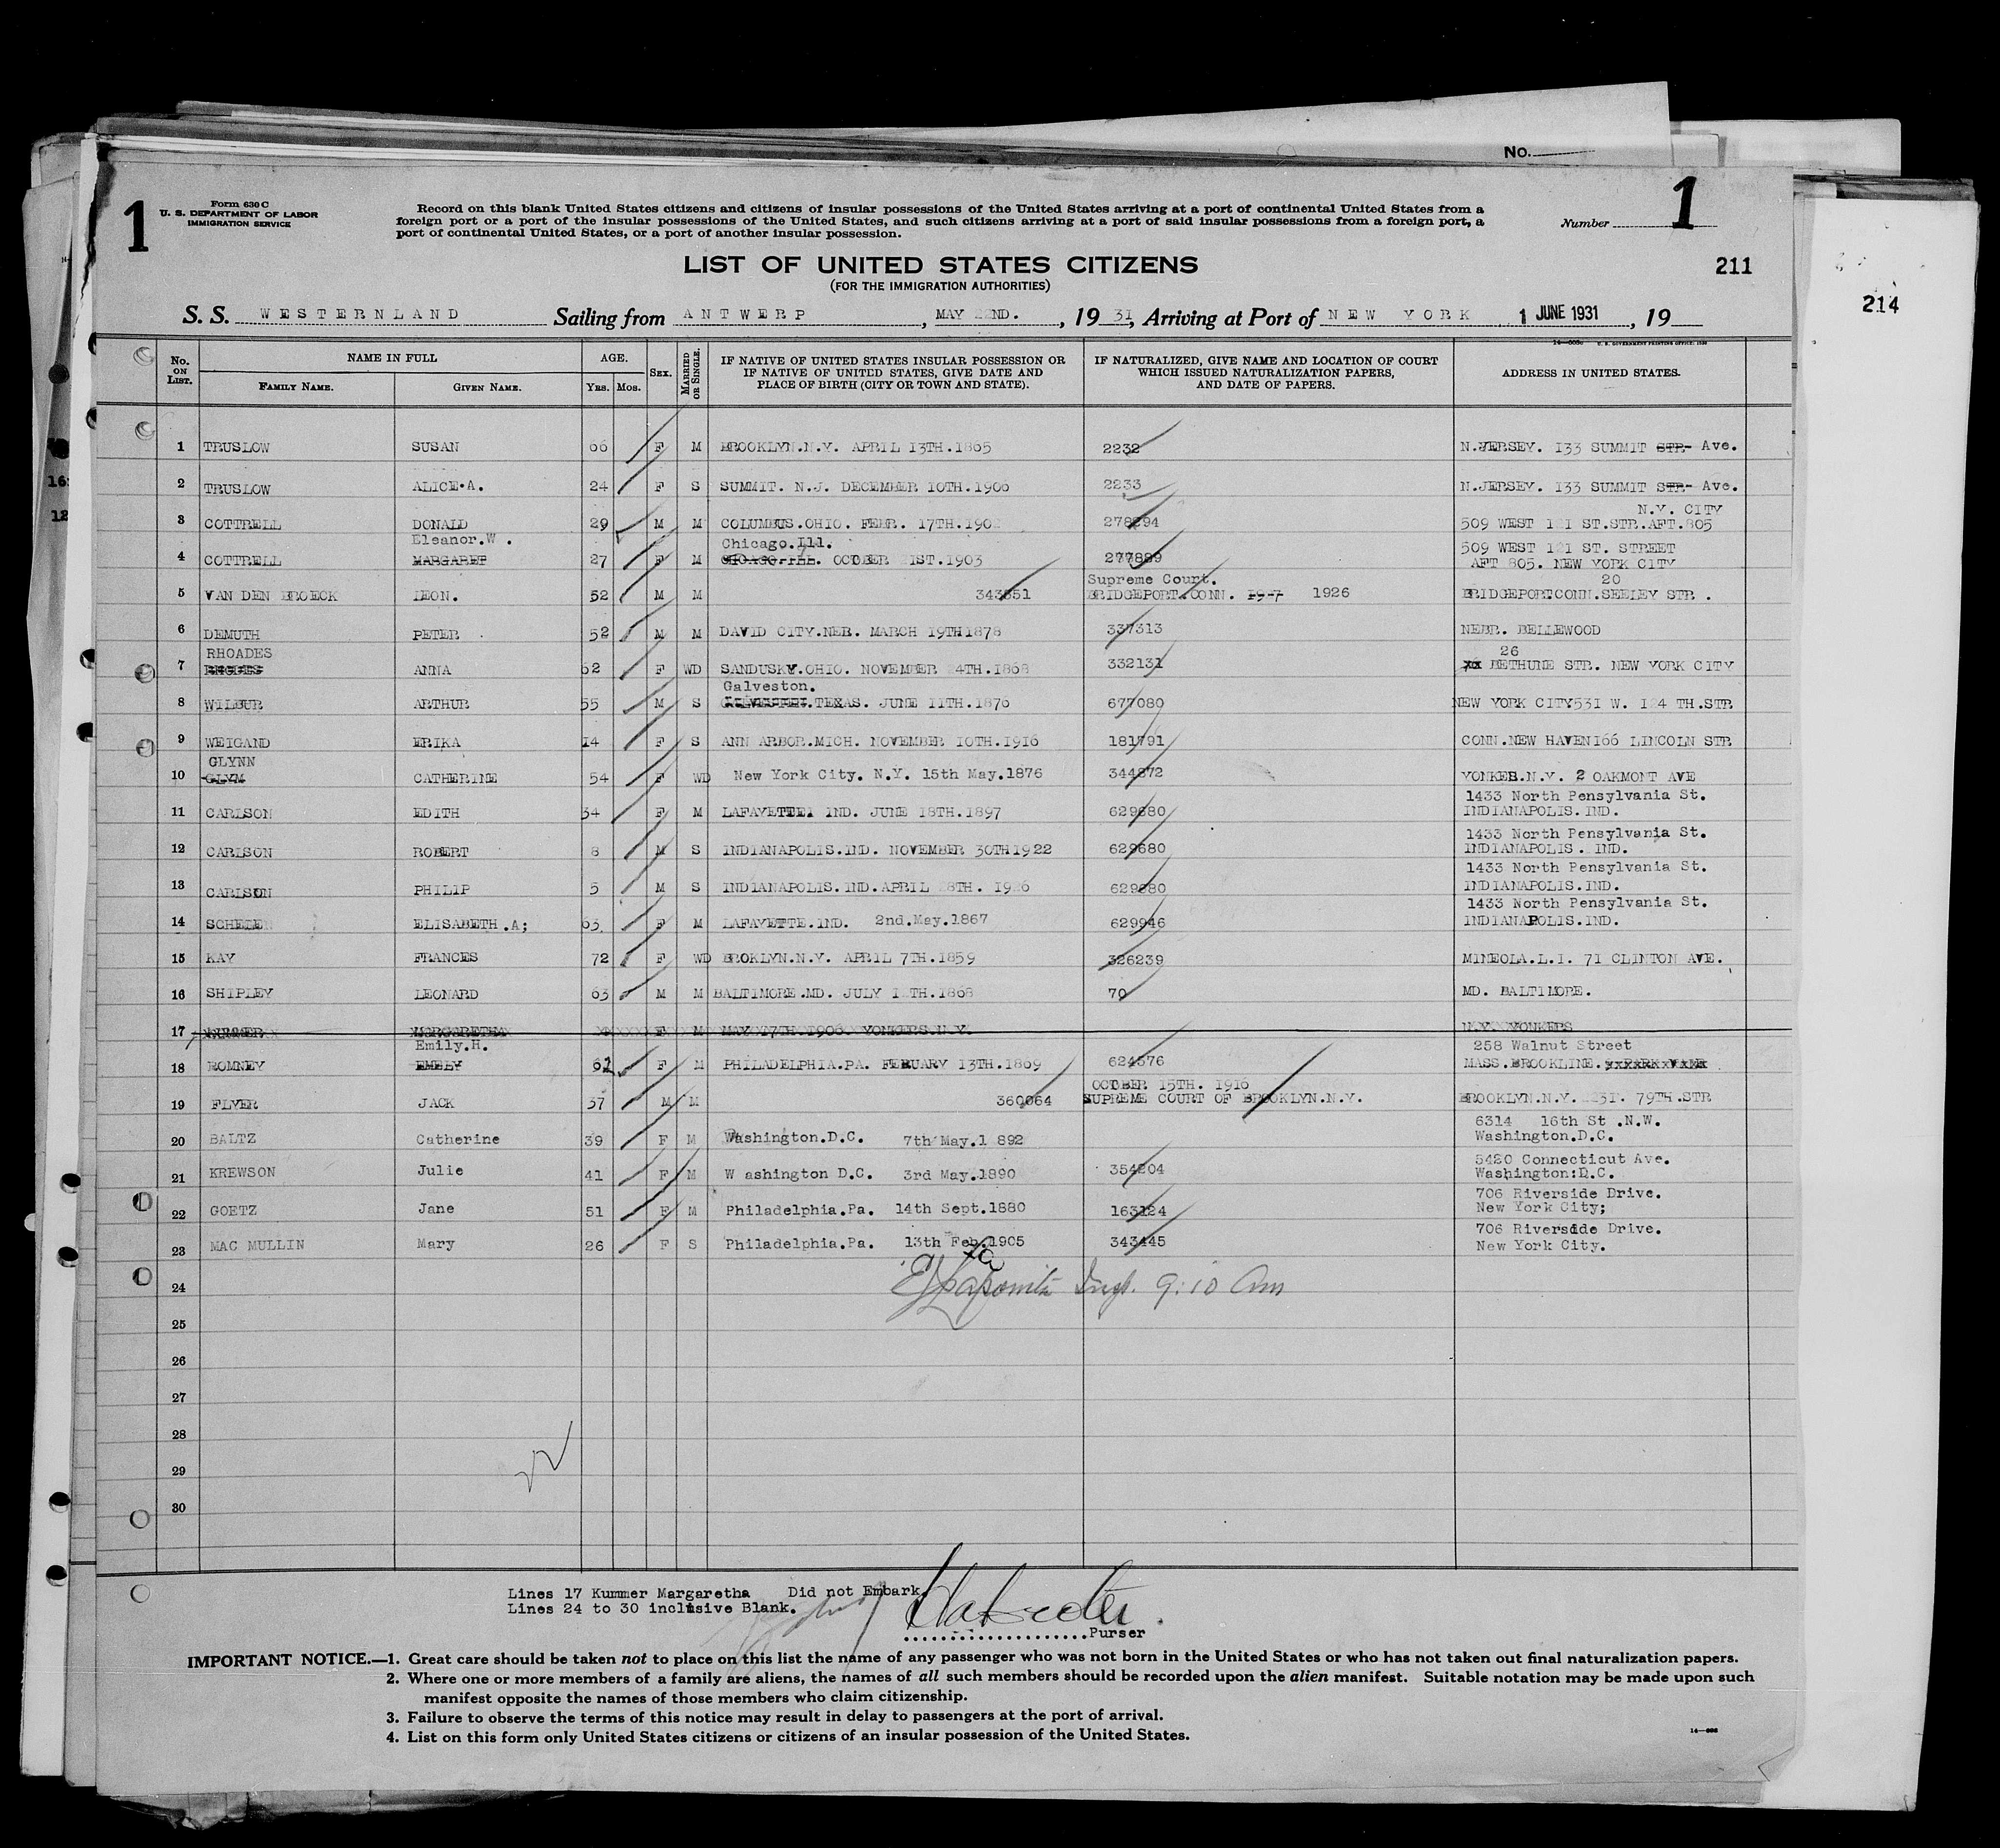 No.
1
Form 630 C
U. S. DEPARTMENT OF LABOR
IMMIGRATION SERVICE
Record on this blank United States citizens and citizens of insular possessions of the United States arriving at a port of continental United States from a
foreign port or a port of the insular possessions of the United States, and such citizens arriving at a port of said insular possessions from a foreign port, a
port of continental United States, or a port of another insular possession.
Number 1
LIST OF UNITED STATES CITIZENS
(FOR THE IMMIGRATION AUTHORITIES)
211
214
S. S. WESTERNLAND Sailing from ANTWERP, MAY 22ND., 19 31, Arriving at Port of NEW YORK 1 JUNE 1931, 19
No. ON LIST. NAME IN FULL FAMILY NAME. GIVEN NAME. AGE. YRS. MOS. SEX. MARRIED OR SINGLE. IF NATIVE OF UNITED STATES INSULAR POSSESSION OR IF NATIVE OF UNITED STATES, GIVE DATE AND PLACE OF BIRTH (CITY OR TOWN AND STATE). IF NATURALIZED, GIVE NAME AND LOCATION OF COURT WHICH ISSUED NATURALIZATION PAPERS, AND DATE OF PAPERS. ADDRESS IN UNITED STATES.
1 TRUSLOW SUSAN 66 F M BROOKLYN.N.Y. APRIL 13TH.1865 2232 N.JERSEY. 133 SUMMIT STR- Ave.
2 TRUSLOW ALICE.A. 24 F S SUMMIT. N.J. DECEMBER 10TH.1906 2233 N.JERSEY. 133 SUMMIT STR- Ave.
N.Y. CITY
3 COTTRELL DONALD 29 M M COLUMBUS.OHIO. FEBR. 17TH.190 278294 509 WEST 121 ST.STR.AFT.805
Eleanor.W . Chicago.Ill. 509 WEST 121 ST. STREET
4 COTTRELL MARGARET 27 F M CHICAGO.ILL. OCTOBER 21ST.1903 277889 AFT 805. NEW YORK CITY
Supreme Court. 20
5 VAN DEN BROECK LEON. 52 M M 343551 BRIDGEPORT.CONN. 19-7 1926 BRIDGEPORT.CONN.SEELEY STR .
6 DEMUTH PETER 52 M M DAVID CITY.NEB. MARCH 19TH1878 337313 NEBR. BELLEWOOD
RHOADES 26
7 ANNA 62 F WD SANDUSKY.OHIO. NOVEMBER 24TH.1868 332131 BETHUNE STR. NEW YORK CITY
Galveston.
8 WILBUR ARTHUR 55 M S TEXAS. JUNE 11TH.1876 677080 NEW YORK CITY531 W. 124 TH.STR
9 WEIGAND ERIKA 14 F S ANN ARBOR.MICH. NOVEMBER 10TH.1916 181791 CONN.NEW HAVEN166 LINCOLN STR
GLYNN
10 GLYM CATHERINE 54 F WD New York City. N.Y. 15th May.1876 344872 YONKER.N.Y. 2 OAKMONT AVE
1433 North Pensylvania St.
11 CARLSON EDITH 34 F M LAFAYETTE. IND. JUNE 18TH.1897 629680 INDIANAPOLIS.IND.
1433 North Pensylvania St.
12 CARLSON ROBERT 8 M S INDIANAPOLIS.IND. NOVEMBER 30TH1922 629680 INDIANAPOLIS. IND.
1433 North Pensylvania St.
13 CARLSON PHILIP 5 M S INDIANAPOLIS.IND.APRIL 28TH. 1926 629680 INDIANAPOLIS.IND.
1433 North Pensylvania St.
14 ELISABETH.A; 63 F M LAFAYETTE.IND. 2nd.May.1867 629946 INDIANAPOLIS.IND.
15 KAY FRANCES 72 F WD BROKLYN.N.Y. APRIL 7TH.1859 326239 MINEOLA.L.I. 71 CLINTON AVE.
16 SHIPLEY LEONARD 63 M M BALTIMORE.MD. JULY TH.1868 70 MD. BALTIMORE.
17 KUMMER MARGARETHA F M MAY 17TH 1906 YONKERS N.Y. N.Y. YONKERS
Emily.H. 258 Walnut Street
18 ROMNEY EMELY 62 F M PHILADELPHIA.PA. FEBRUARY 13TH.1869 624576 MASS.BROOKLINE.
OCTOBER 15TH. 1916
19 FLYER JACK 37 M M 360064 SUPREME COURT OF BROOKLYN.N.Y. BROOKLYN.N.Y. 79TH.STR
6314 16th St .N.W.
20 BALTZ Catherine 39 F M Washington.D.C. 7th May.1 892 Washington.D.C.
5420 Connecticut Ave.
21 KREWSON Julie 41 F M W ashington D.C. 3rd May.1890 354204 Washington:D.C.
706 Riverside Drive.
22 GOETZ Jane 51 F M Philadelphia.Pa. 14th Sept.1880 163124 New York City;
706 Riverside Drive.
23 MAC MULLIN Mary 26 F S Philadelphia.Pa. 13th Feb.1905 343445 New York City.
24 Insp. 9:10 Am
25
26
27
28
29
30
22
Lines 17 Kummer Margaretha Did not Embark.
Lines 24 to 30 inclusive Blank.
Purser
IMPORTANT NOTICE.—1. Great care should be taken not to place on this list the name of any passenger who was not born in the United States or who has not taken out final naturalization papers.
2. Where one or more members of a family are aliens, the names of all such members should be recorded upon the alien manifest. Suitable notation may be made upon such
manifest opposite the names of those members who claim citizenship.
3. Failure to observe the terms of this notice may result in delay to passengers at the port of arrival.
4. List on this form only United States citizens or citizens of an insular possession of the United States.